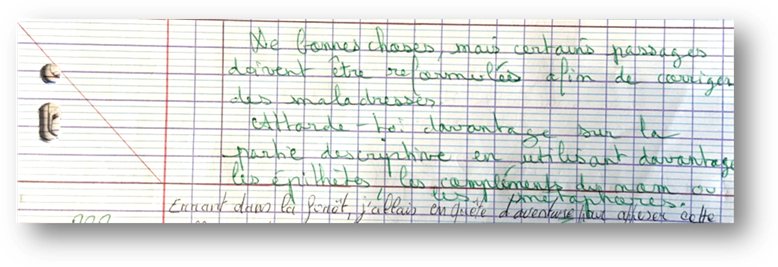 De bonnes choses, mais certains passages
doivent être reformulés afin de corriger
des maladresses.
Attarde-toi davantage sur la
partie descriptive en utilisant davantage
les épithètes, les compléments du nom ou
les métaphores.
Errant dans la forêt, j'allais en quête d'aventure pour apaiser cette